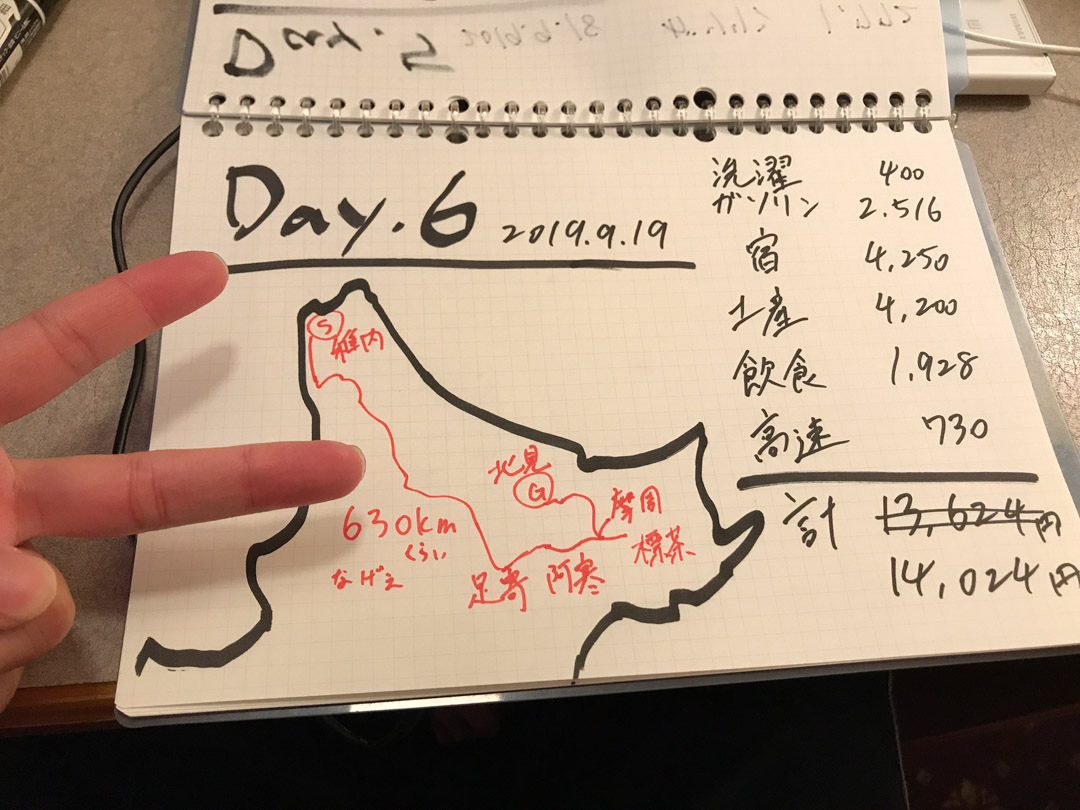 Day. 5
Day.6 2019.9.19
洗濯 400
ガソリン 2.516
宿 4,250
土産 4,200
飲食 1,928
高速 730
計 13,624円
14,024円
S
稚内
北見
G
摩周
標茶
阿寒
足寄
630km
くらい
なげぇ